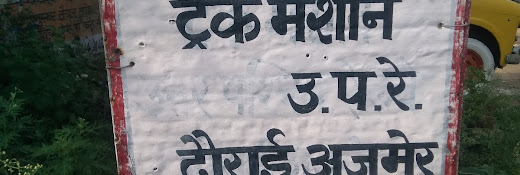 ट्रैक मशीन
उ.प.रे.
दौराई अजमेर